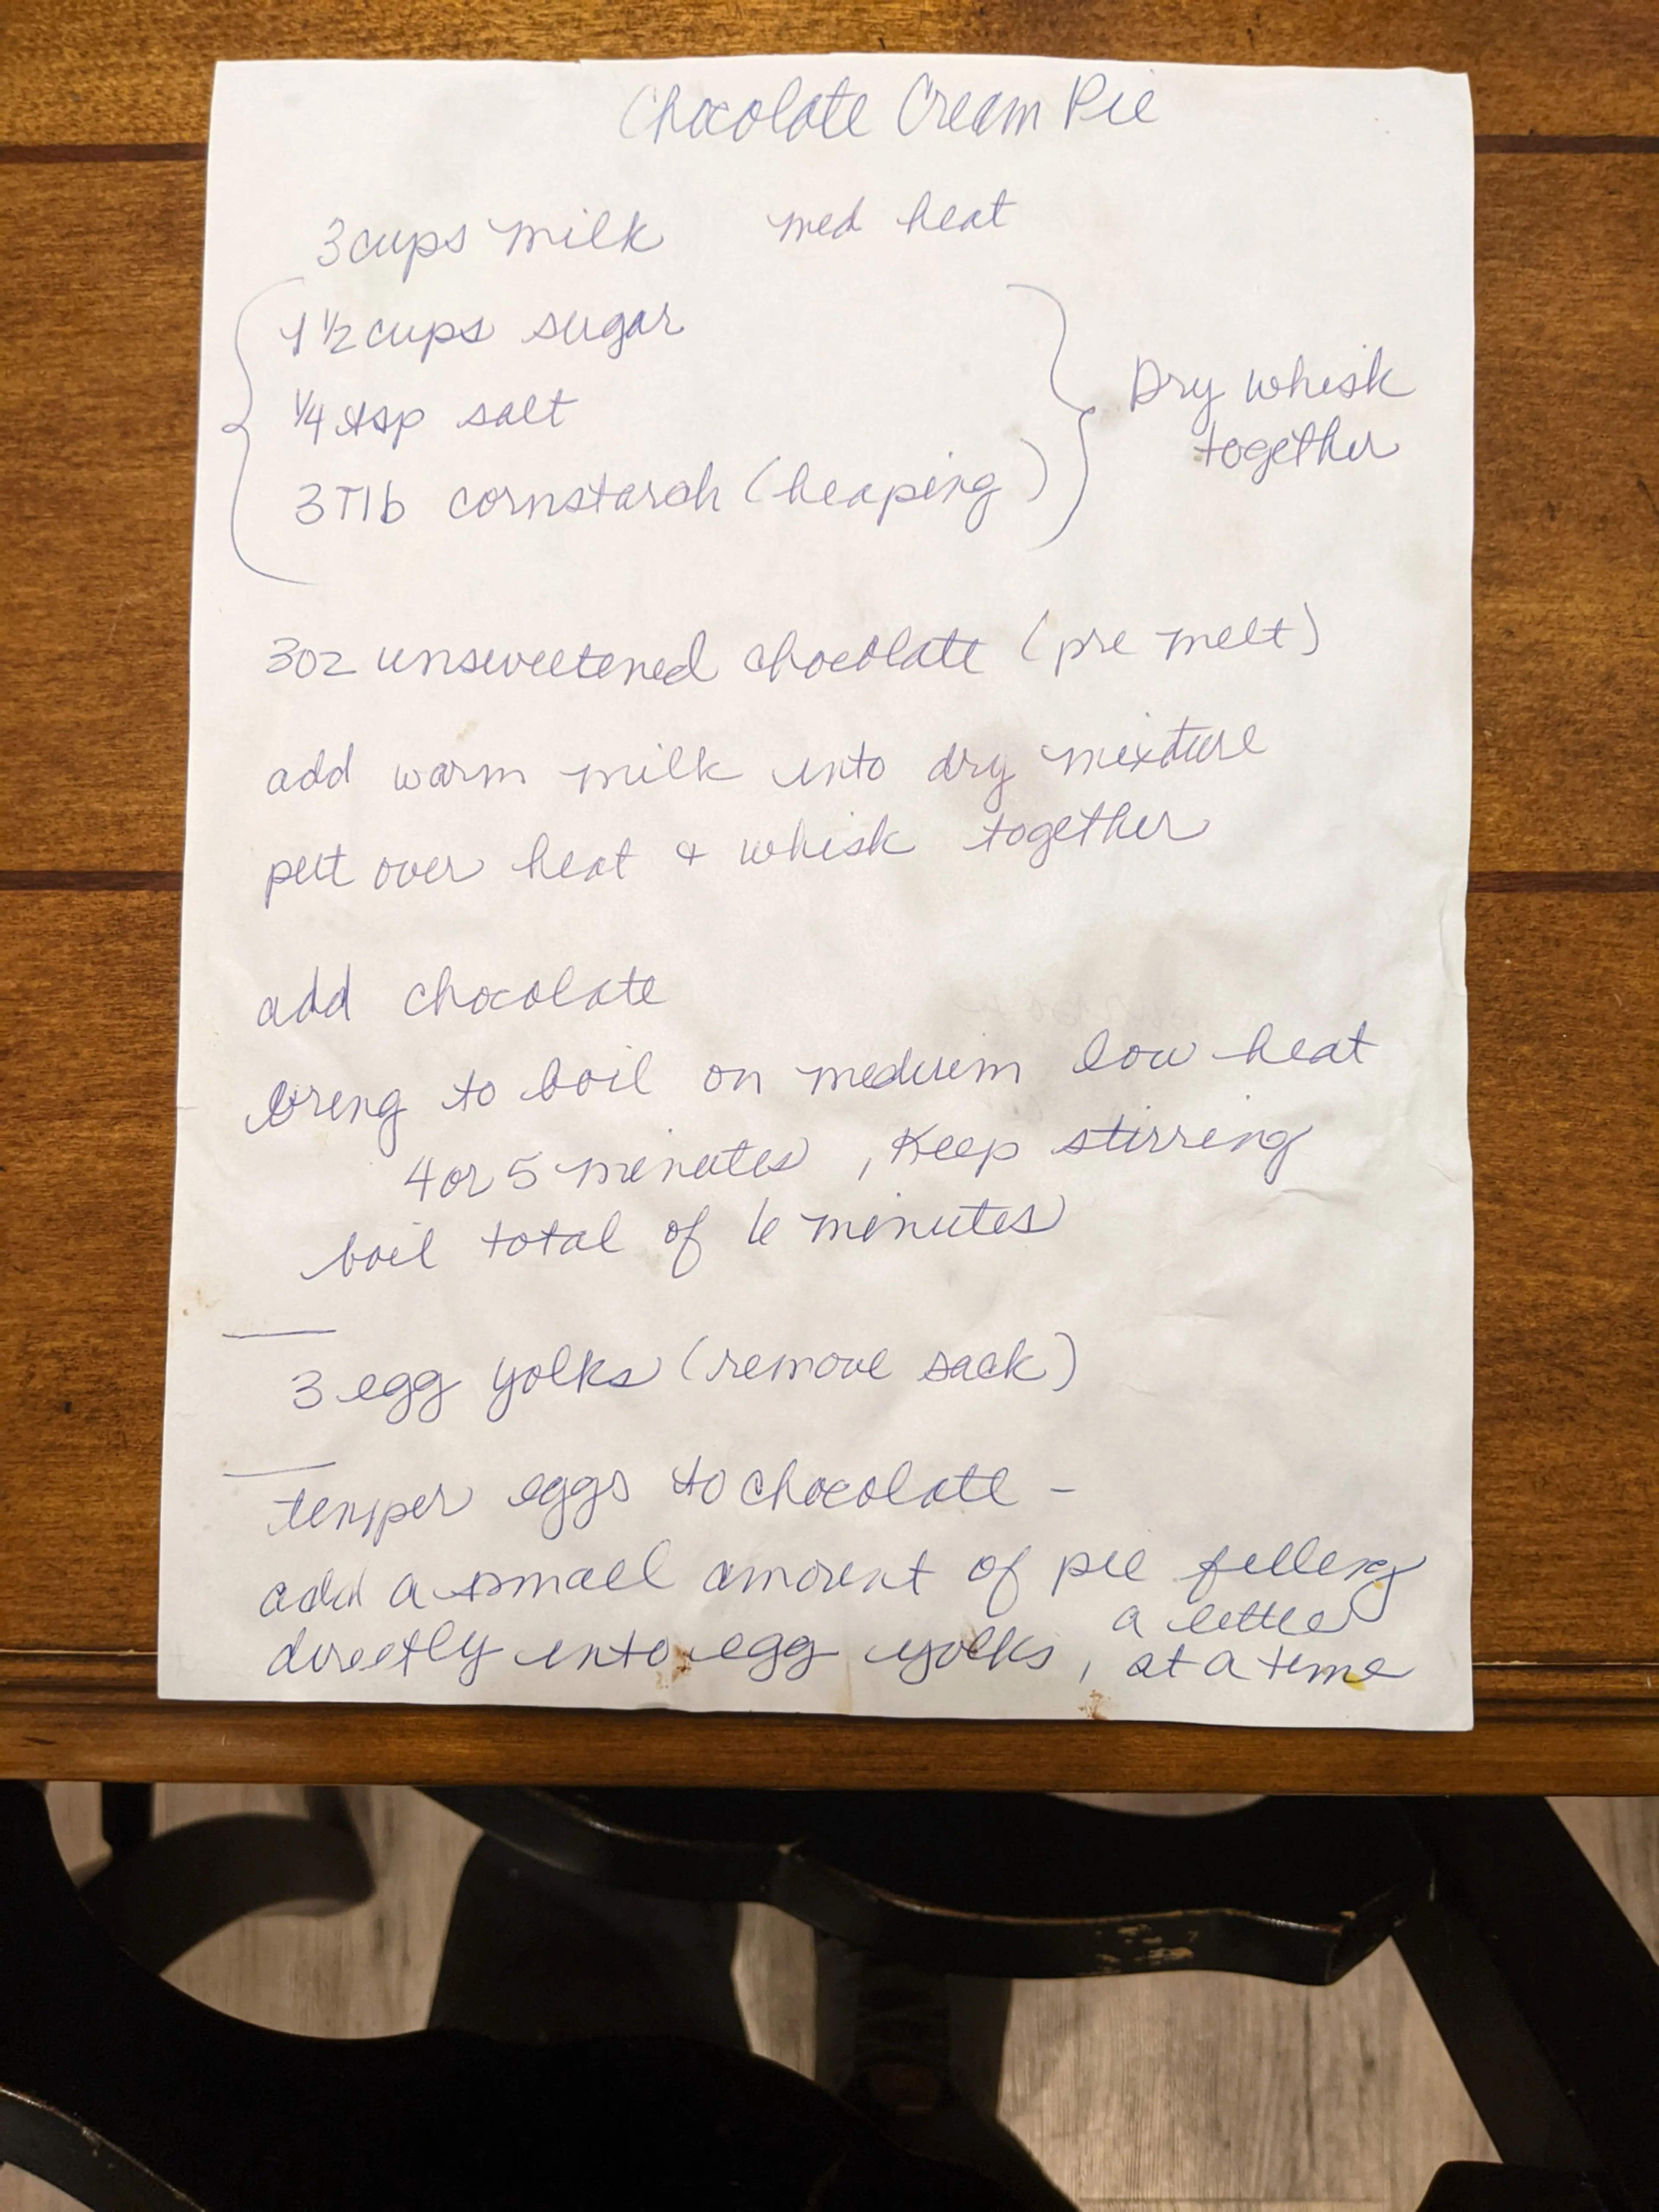 Chocolate Cream Pie
3 cups milk med heat
1 1/2 cups sugar
1/4 tsp salt
3 Tlb cornstarch (heaping)
Dry whisk
together
3oz unsweetened chocolate (pre melt)
add warm milk into dry mixture
put over heat & whisk together
add chocolate
bring to boil on medium low heat
4 or 5 minutes, Keep stirring
boil total of 6 minutes
3 egg yolks (remove sack)
temper eggs to chocolate -
add a small amount of pie filling
directly into egg yolks, a little
at a time